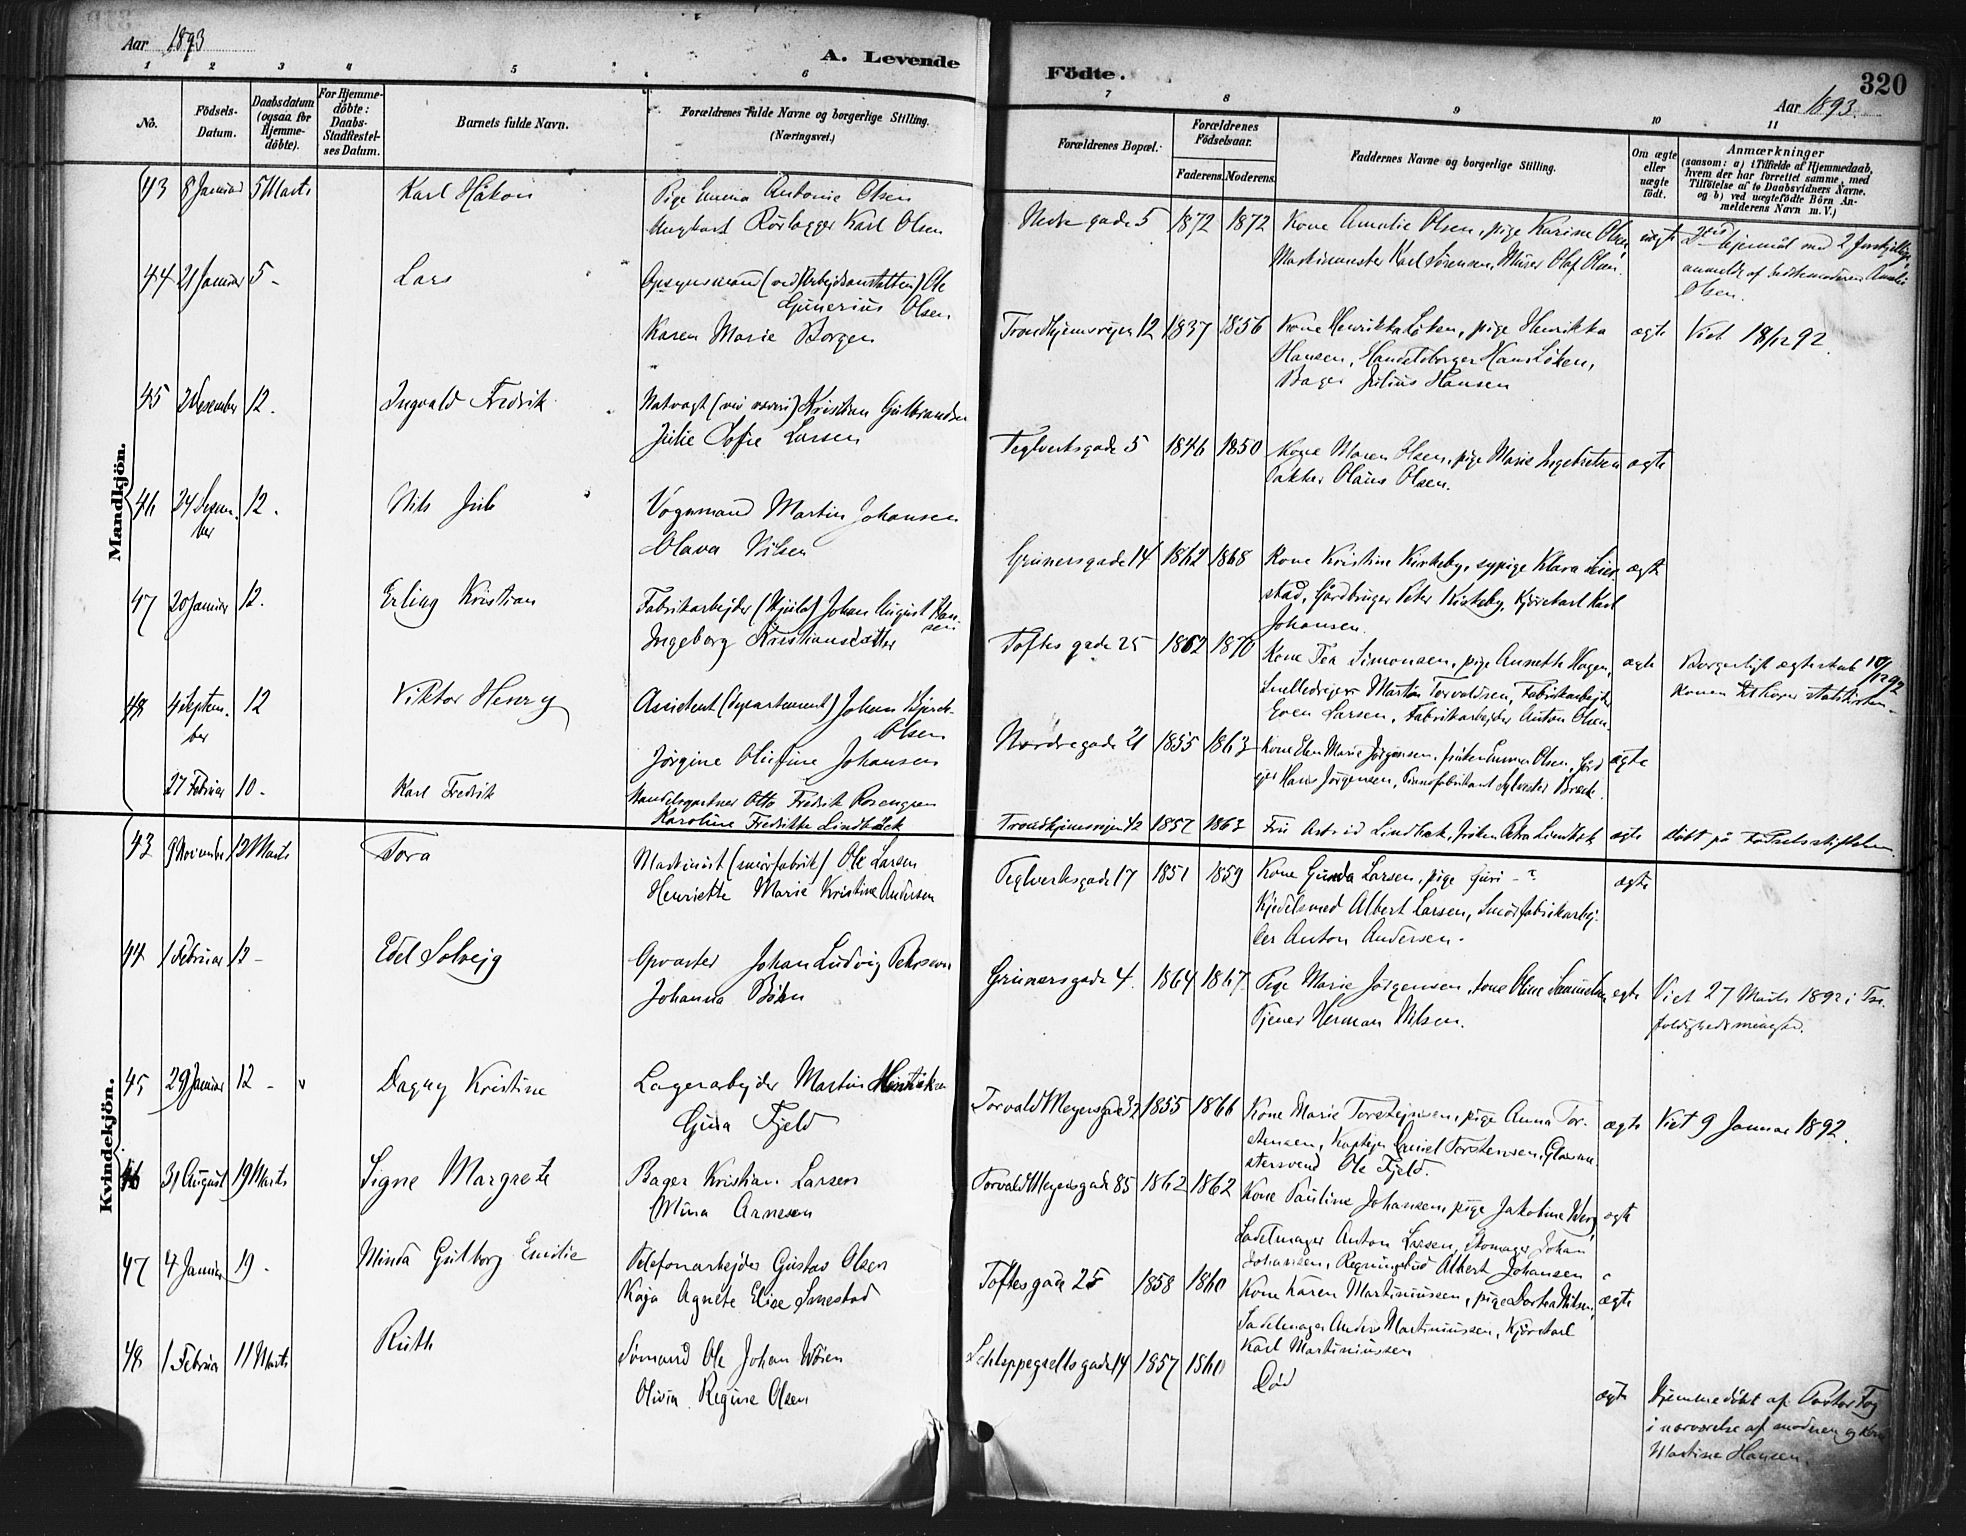 Aar 1893
A. Levende
Födte.
320
Aar 1893.
1 2 3 4 5 6 7 8 9 10 11
No.
Födsels-Datum.
Daabsdatum (ogsaa for Hjemme-döbte).
For Hjemme-döbte: Daabs-Stadfestel-ses Datum.
Barnets fulde Navn.
Forældrenes fulde Navne og borgerlige Stilling. (Næringsvei.)
Forældrenes Bopæl.
Forældrenes Födselsaar.
Faderens. Moderens.
Faddernes Navne og borgerlige Stilling.
Om ægte eller uægte födt.
Anmærkninger
(saasom: a) i Tilfælde af Hjemmedaab, hvem der har forrettet samme, med Tilföielse af to Daabsvidners Navne. og b) ved uægtefödte Börn An-melderens Navn m. V.)
Mandkjön.
43 8 Januar 5 Marts Karl Håkon
Pige Emma Antonie Olsen
Ungkarl Rörlægger Karl Olsen
Nedre gade 5 1872 1872
Kone Amalie Olsen, pige Karine Olsen,
Maskinmester Karl Sörensen, Murer Olaf Olsen.
uægte
44 21 Januar 5 - Lars
Opsynsmand (ved Arbejdsanstalten) Ole
Gunerius Olsen
Karen Marie Borgen
Trondhjemsvejen 12 1837 1856
Kone Henrikka Löken, pige Henrikka
Hansen, Handelsborger Hans Löken,
Bager Julius Hansen
ægte Viet 18/12 92.
45 2 Desember 12. Ingvald Fredrik
Natvagt Kristian Gulbrandsen
Julie Sofie Larsen
Teglverksgade 5 1846 1850
Kone Maren Olsen, pige Marie Ingebretsen
Pakker Olaus Olsen.
ægte
46 24 Desem-
ber
12. Nils Juls
Vognmand Martin Johansen
Olava Nilsen
Grünersgade 14 1862 1868
Kone Kristine Kirkeby, sypige Klara Seier-
stad, Gårdbruger Peter Kirkeby, Kjörekarl Karl
Johansen.
ægte
47 20 Januar 12. Erling Kristian
Fabrikarbejder (Hjula) Johan August Han-
sen
Ingeborg Kristiansdatter
Toftes gade 25 1862 1870
Kone Tea Simonsen, pige Annette Hagen,
Martin Torvaldsen, Fabrikarbejder
Even Larsen, Fabrikarbejder Anton Olsen.
ægte
Borgerligt ægteskab 10/12 92
konen tilhører statskirken -
48 4 Septem-
ber
12 Viktor Henry
Assistent (Departement) Johan Bjerch-
Olsen
Jörgine Olufine Johansen
Nordregade 21 1855 1863
Kone Elen Marie Jörgensen, fröken Emma Olsen,
Hans Jörgensen, Pianofabrikant Sylvester Bræck.
ægte
27 Februar 10 - Karl Fredrik
Handelsgartner Otto Fredrik Rosengren
Karoline Fredrikke Lindbäck
Trondhjemsvejen 42 1857 1863
Fru Astrid Lindbæk, fröken Petra Lindbæk
ægte döbt på Födselsstiftelsen.
Kvindekjön.
43 9 November 12 Marts Tora
Maskinist (smörfabrik) Ole Larsen
Henriette Marie Kristine Andersen
Teglverksgade 17 1851 1859
Kone Gunda Larsen, pige Guri - ?
Kjedelsmed Albert Larsen, Smörfabrikarbej-
der Anton Andersen.
ægte
44 1 Februar 12 - Edel Solvejg
Opvarter Johan Ludvig Pettersen
Johanna Böhn
Grünersgade 4 1864 1867
Pige Marie Jörgensen, kone Oline Samuelsen
Tjener Herman Nilsen.
ægte
Viet 27 Marts 1892 i Tre-
foldighedsmenighed.
45 29 Januar 12 - v Dagny Kristine
Lagerarbejder Martin Henriksen
Gina Fjeld
Torvald Meyersgade 32 1855 1866
Kone Marie Torstensen, pige Anna Tor-
stensen, Kaptejn Emiel Torstensen, Glarme-
stersvend Ole Fjeld.
ægte Viet 9 Januar 1892.
46 31 August 19 Marts Signe Margrete
Bager Kristian Larsen
Mina Arnesen
Torvald Meyersgade 85 1862 1862
Kone Pauline Johansen, pige Jakobine Werg,
Sadelmager Anton Larsen, Skomager Johan
Johansen, Regningsbud Albert Johansen
ægte
47 4 Januar 19 - Minda Gulborg Emilie
Telefonarbejder Gustav Olsen
Kaja Agnete Elise Smestad
Toftesgade 25 1858 1860
Kone Karen Martiniussen, pige Dortea Nilsen,
Sadelmager Anders Martiniussen, Kjörekarl
Karl Martiniussen
ægte
48 1 Februar 11 Marts Ruth
Sömand Ole Johan Woien
Olivia Regine Olsen
Schleppegrellsgade 14 1857 1860
Död
ægte
Hjemmedöbt af Pastor Fog
i nærværelse af moderen og
Martine Hansen.